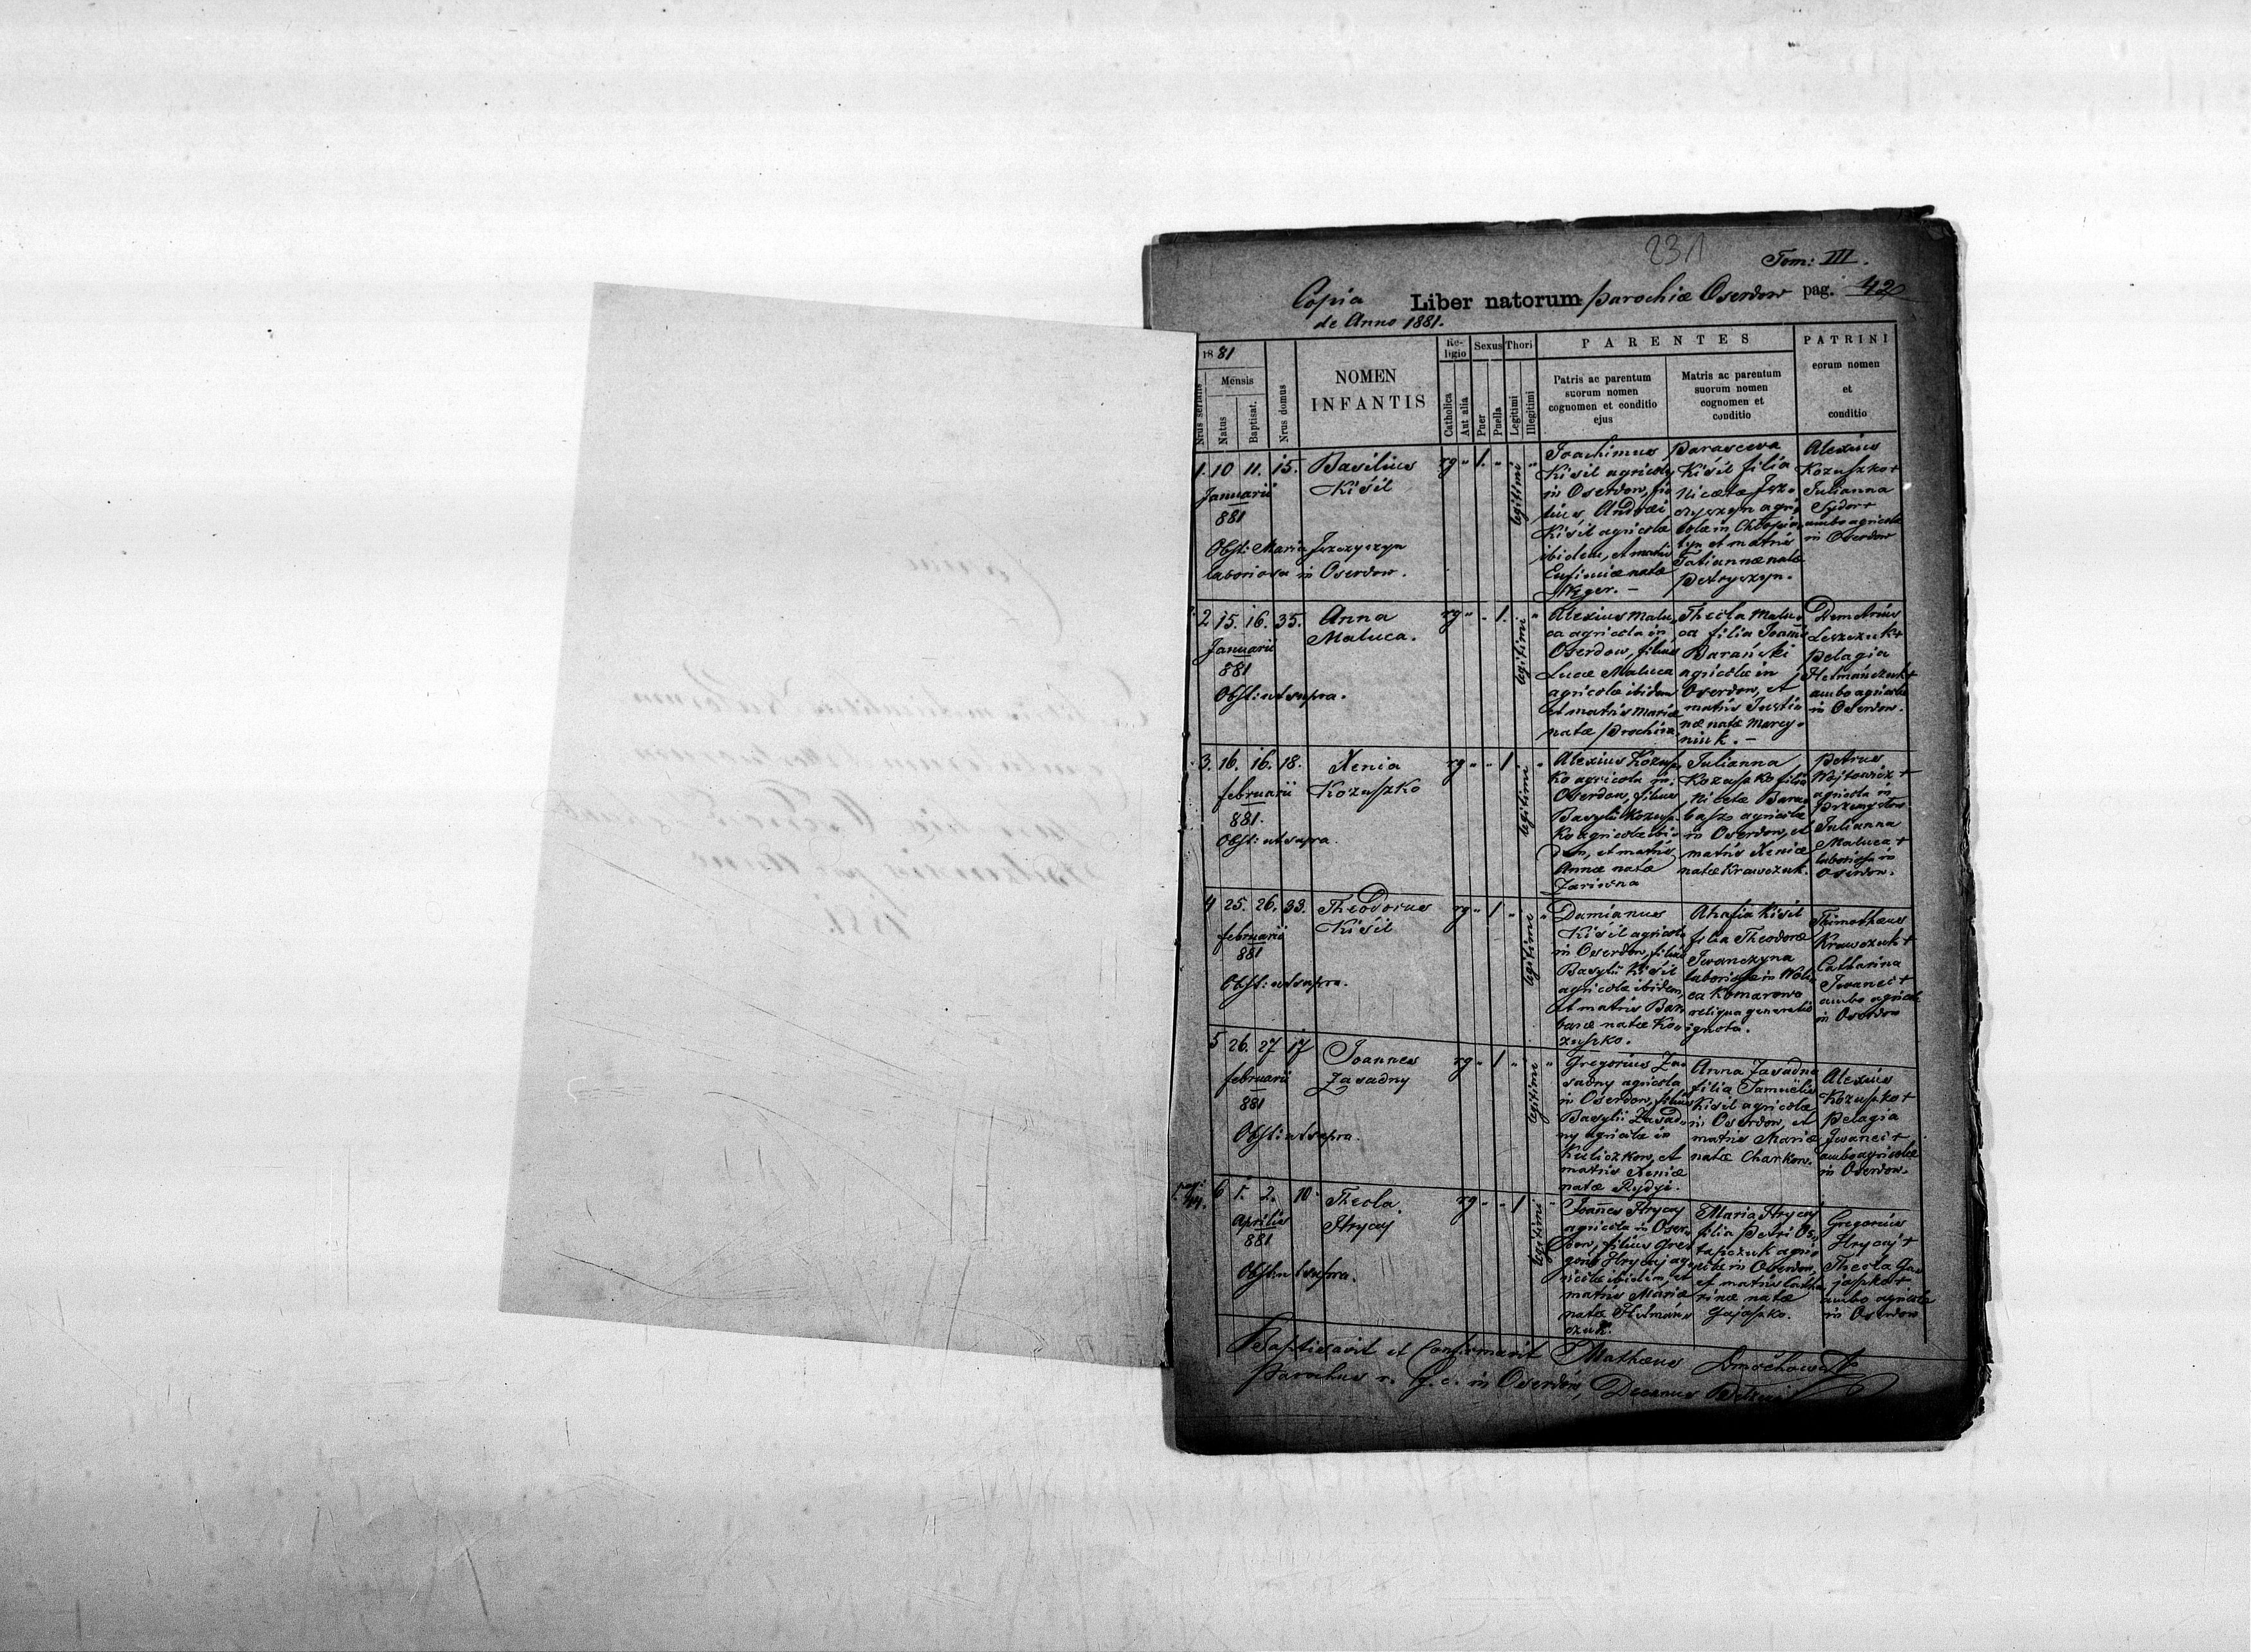 231
Tom: III.
Copia Liber natorum parochiæ Oserdow pag. 42
de Anno 1881.
1881
Nrus serialis
Mensis
Natus
Baptisat.
Nrus domus
NOMEN
INFANTIS
Re-
ligio
Catholica
Aut alia
Sexus
Puer
Puella
Thori
Legitimi
Illegitimi
PARENTES
Patris ac parentum
suorum nomen
cognomen et conditio
ejus
Matris ac parentum
suorum nomen
cognomen et
conditio
PATRINI
eorum nomen
et
conditio
1. 10 11. 15.
Januarii
881
Obst: Maria Jszczyszyn
laboriosa in Oserdow.
Basilius
Kisil
rg " 1. " legitimi "
Joachimus
Kisil agricola
in Oserdow, fi-
lius Andrei
Kisil agricolæ
ibidem, et matris
Eufimiæ natæ
Parasceva
Kisil filia
Nicetæ Jszc-
zyszyn agri-
colæ in
et matris
Tatiannæ natæ
Petryszyn.
Alexius
Kozuszko +
Julianna
Sydor +
ambo agricolæ
in Oserdow
2 15. 16. 35.
Januarii
881
Obst: ut supra.
Anna
Maluca.
rg " " 1. legitimi "
Alexius Malu-
ca agricola in
Oserdow, filius
Lucæ Maluca
agricolæ ibidem
et matris Mariæ
natæ
Thecla Malu-
ca filia Joannis
Barański
agricolæ in
Oserdow, et
matris Justia-
næ natæ Marcy-
niuk. –
Demetrius
Leszczuk +
Pelagia
Hetmańczuk +
ambo agricolæ
in Oserdow.
3. 16. 16. 18.
februarii
881.
Obst: ut supra.
Xenia
Kozuszko
rg " " 1 legitimi "
Alexius Kozusz-
ko agricola in
Oserdow, filius
Basylii Kozusz-
ko agricolæ ibi-
dem, et matris
Annæ natæ
Zariwna
Julianna
Kozuszko filia
Nicetæ Bara-
baszo agricolæ
in Oserdow, et
matris Xeniæ
natæ Krawczuk.
Petrus
Wojtowicz +
agricola in
Przemysłow
Julianna
Maluca +
laboriosa in
Oserdow.
4 25. 26. 33.
februarii
881
Obst: ut supra.
Theodorus
Kisil
rg " 1 " legitimi "
Damianus
Kisil agricola
in Oserdow, filius
Basylii Kisil
agricolæ ibidem,
et matris Bar-
baræ natæ Ko-
zuszko.
Ahafia Kisil
filia Theodoræ
Iwanczyna
laboriosæ in Woli-
ca Komarowo
reliqua generatio
ignota.
Thimotheus
Krawczuk +
Catharina
Iwanei +
ambo agricolæ
in Oserdow
5 26. 27 17
februarii
881
Obst: ut supra.
Joannes
Zasadny
rg " 1 " legitimi "
Gregorius Za-
sadny agricola
in Oserdow, filius
Basylii Zasad-
ny agricolæ in
Kuliczkow, et
matris Xeniæ
natæ Rydyi.
Anna Zasadna
filia Samuëlis
Kisil agricolæ
in Oserdow, et
matris Mariæ
natæ Charkow.
Alexius
Kozuszko +
Pelagia
Iwanei +
ambo agricolæ
in Oserdow.
6 1. 2. 10.
Aprilis
881
Obst: ut supra.
Thecla
Hrycaj
rg " " 1 legitimi "
Joannes Hrycaj
agricola in Oser-
dow, filius Gre-
gorii Hrycaj ag-
ricolæ ibidem, et
matris Mariæ
natæ Hetmań-
czuk.
Maria Hrycaj
filia Petri Os-
tapczuk agri-
colæ in Oserdow,
et matris Catha-
rinæ natæ
Gajoszko.
Gregorius
Hrycaj +
Thecla Ga-
joszko +
ambo agricolæ
in Oserdow
Baptisavit et Confirmavit Mathæus
Parochus r. g. c. in Oserdow, Decanus